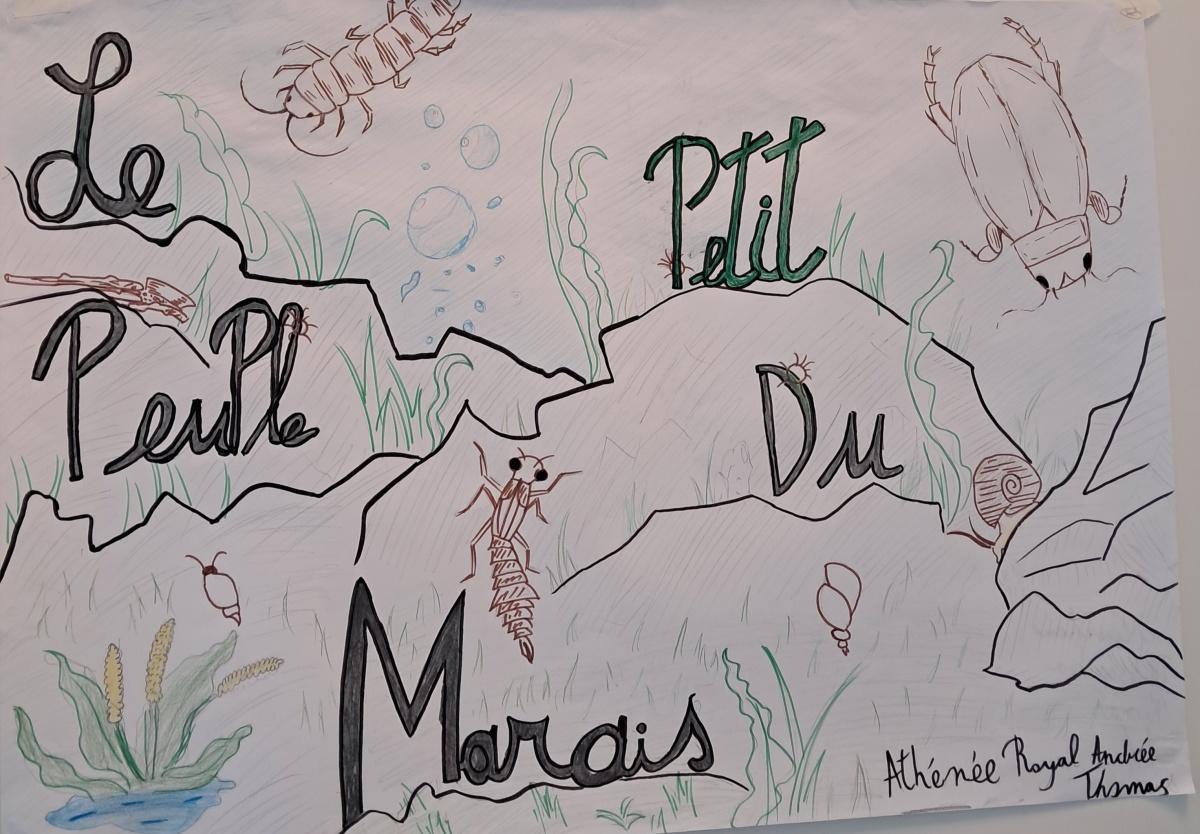 Le
Petit
PeuPle
Du
Marais
Athénée Royal Andrée
Thomas